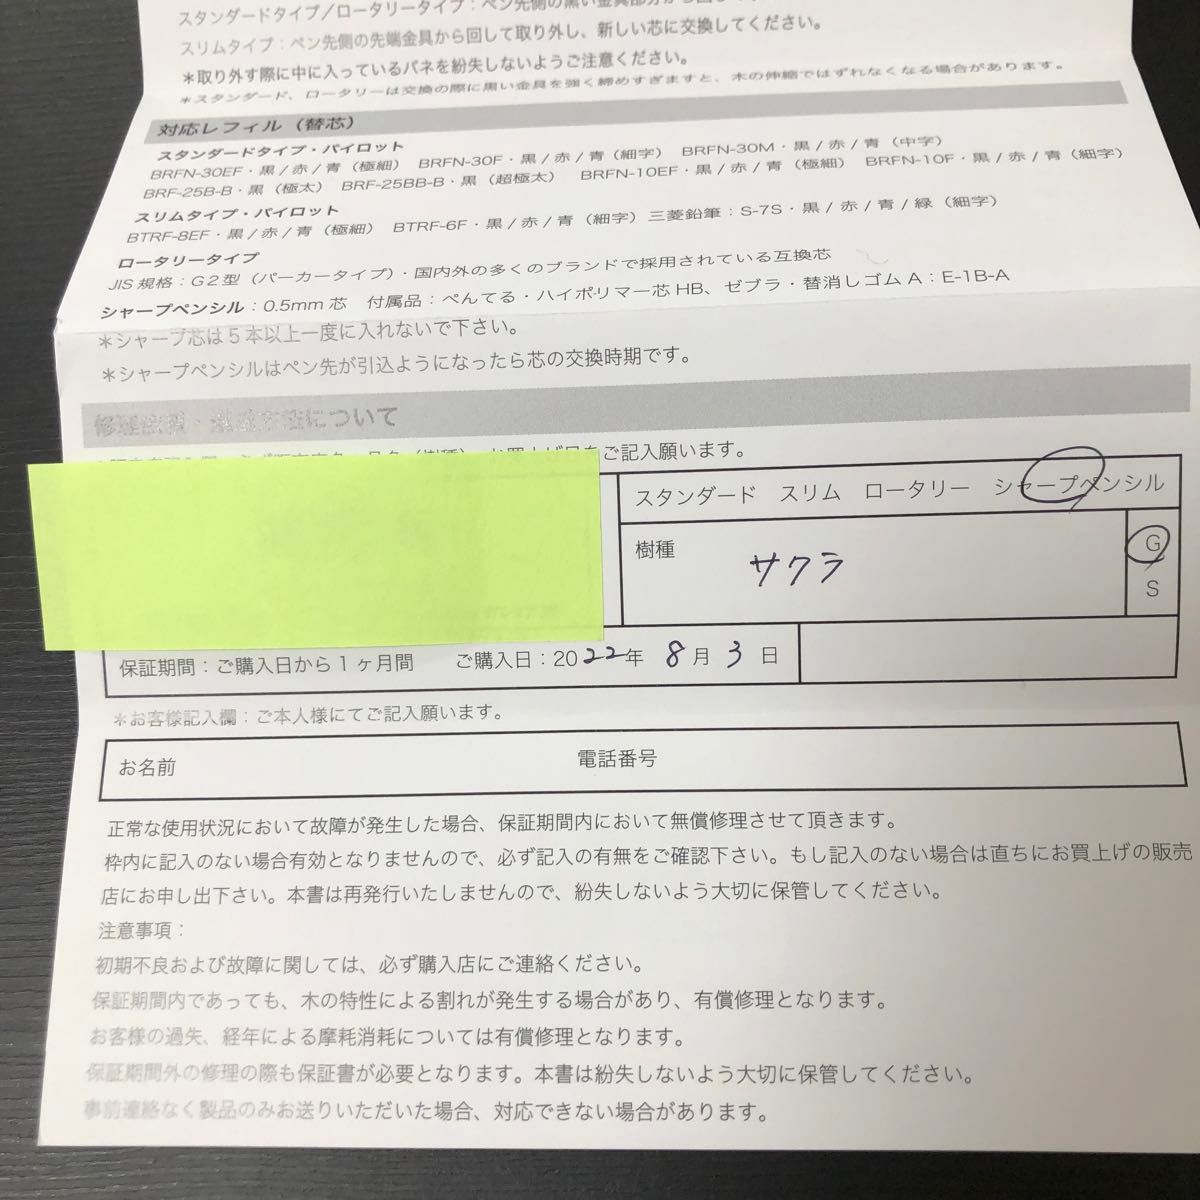 スタンダードタイプ/ロータリータイプ:ペン先側の黒い金具部分から回して
スリムタイプ:ペン先側の先端金具から回して取り外し、新しい芯に交換してください。
*取り外す際に中に入っているバネを紛失しないようご注意ください。
*スタンダード、ロータリーは交換の際に黒い金具を強く締めすぎますと、木の伸縮ではずれなくなる場合があります。
対応レフィル(替芯)
スタンダードタイプ・パイロット
BRFN-30EF・黒/赤/青(極細) BRFN-30F・黒/赤/青(細字) BRFN-30M・黒/赤/青(中字)
BRF-25B-B・黒(極太) BRF-25BB-B・黒(超極太) BRFN-10EF・黒/赤/青(極細) BRFN-10F・黒/赤/青(細字)
スリムタイプ・パイロット
BTRF-8EF・黒/赤/青(極細) BTRF-6F・黒/赤/青(細字)三菱鉛筆:S-7S・黒/赤/青/緑(細字)
ロータリータイプ
JIS規格:G2型(パーカータイプ)・国内外の多くのブランドで採用されている互換芯
シャープペンシル:0.5mm芯 付属品:ぺんてる・ハイポリマー芯HB、ゼブラ・替消しゴムA:E-1B-A
*シャープ芯は5本以上一度に入れないで下さい。
*シャープペンシルはペン先が引込ようになったら芯の交換時期です。
について
をご記入願います。
スタンダード スリム ロータリー シャープペンシル
樹種 サクラ
G
S
保証期間:ご購入日から1ヶ月間 ご購入日:2022年 8月 3日
*お客様記入欄:ご本人様にてご記入願います。
お名前 電話番号
正常な使用状況において故障が発生した場合、保証期間内において無償修理させて頂きます。
枠内に記入のない場合有効となりませんので、必ず記入の有無をご確認下さい。もし記入のない場合は直ちにお買上げの販売
店にお申し出下さい。本書は再発行いたしませんので、紛失しないよう大切に保管してください。
注意事項:
初期不良および故障に関しては、必ず購入店にご連絡ください。
保証期間内であっても、木の特性による割れが発生する場合があり、有償修理となります。
お客様の過失、経年による摩耗消耗については有償修理となります。
保証期間外の修理の際も保証書が必要となります。本書は紛失しないよう大切に保管してください。
事前連絡なく製品のみお送りいただいた場合、対応できない場合があります。